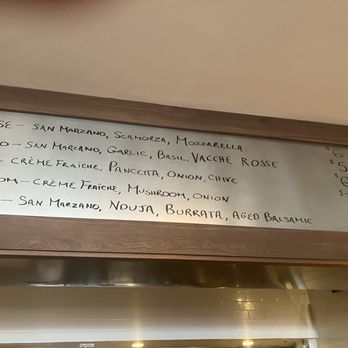 SE - SAN MARZANO, SCAMORZA, MOZZARELLA $6
O - SAN MARZANO, GARLIC, BASIL, VACCHE ROSSE $5
- CRÈME FRAICHE, PANCETTA, ONION, CHIVE $6
OM - CRÈME FRAICHE, MUSHROOM, ONION $
- SAN MARZANO, NDUJA, BURRATA, AGED BALSAMIC